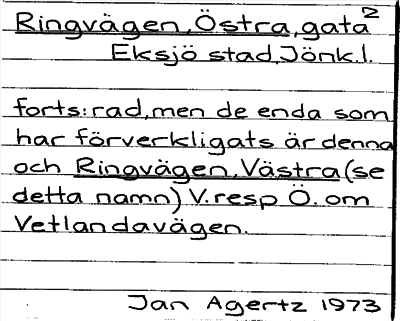 Ringvägen, Östra, gata 2
Eksjö stad, Jönk.l.
forts: rad, men de enda som
har förverkligats är denna
och Ringvägen, Västra (se
detta namn) V. resp Ö. om
Vetlandavägen.
Jan Agertz 1973